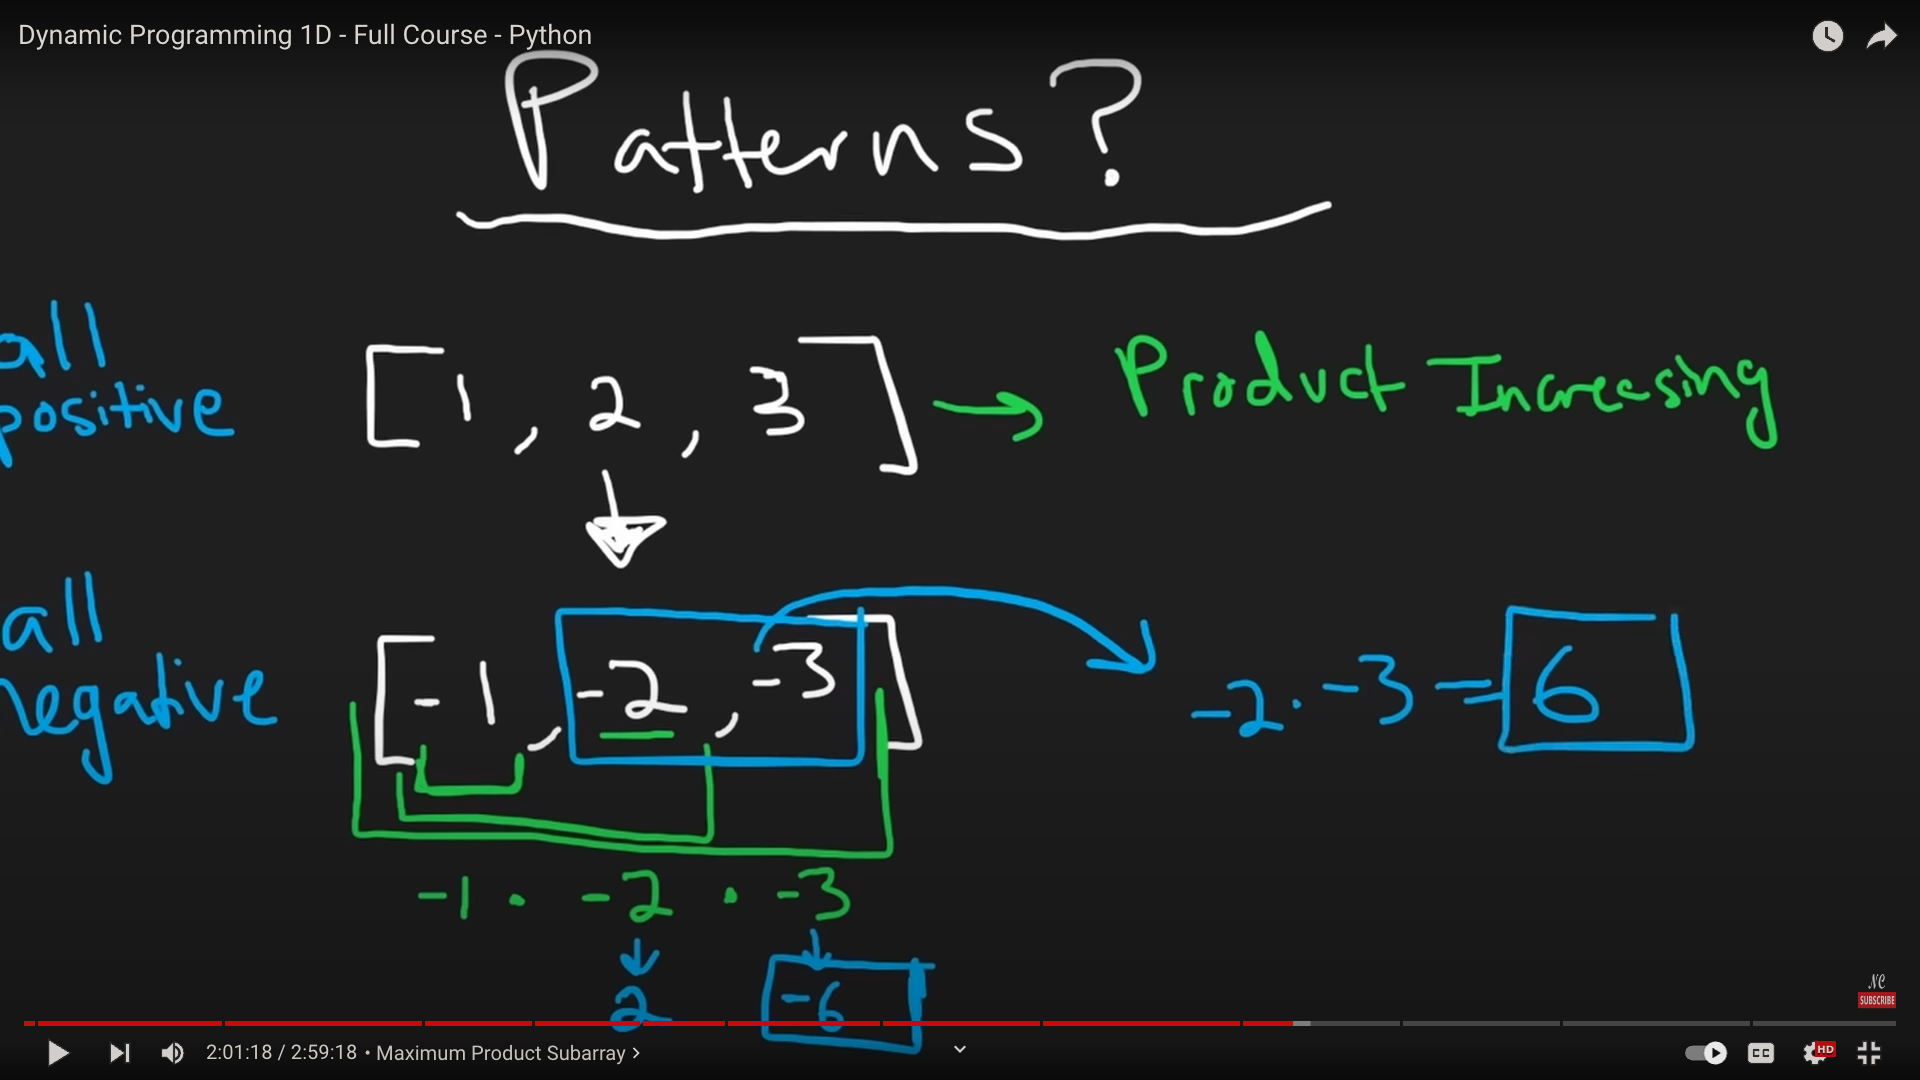 Dynamic Programming 1D - Full Course - Python
Patterns?
all
positive
[1, 2, 3] → Product Increasing
all
negative
[-1, -2, -3]
-2 · -3 = 6
-1 · -2 · -3
2 -6
NC
SUBSCRIBE
2:01:18 / 2:59:18 • Maximum Product Subarray >
CC
HD